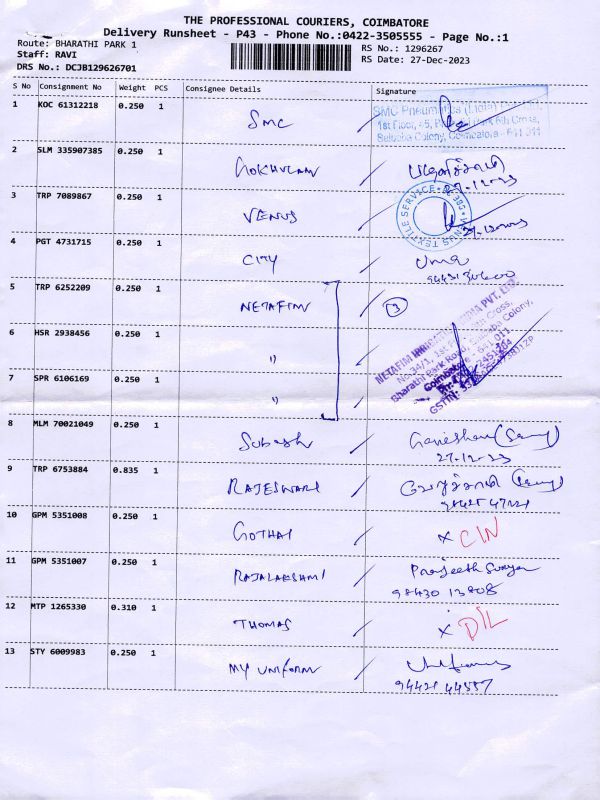 THE PROFESSIONAL COURIERS, COIMBATORE
Delivery Runsheet - P43 - Phone No.:0422-3505555 - Page No.:1
Route: BHARATHI PARK 1
RS No.: 1296267
Staff: RAVI
RS Date: 27-Dec-2023
DRS No.: DCJB129626701
S No Consignment No Weight PCS Consignee Details Signature
1 KOC 61312218 0.250 1 SMC
SMC Pneumatics (India)
1st Floor, Park 6th Cross,
Saibaba Colony, Coimbatore - 641 011
2 SLM 335907385 0.250 1 GOKHULAM
27-12-23
3 TRP 7089867 0.250 1 VENUS
VENUS TEXTILE SERVICE CBE
27-12-2023
4 PGT 4731715 0.250 1 CITY Uma
5 TRP 6252209 0.250 1 NETAFIM 3
6 HSR 2938456 0.250 1 "
7 SPR 6106169 0.250 1 "
NETAFIM IRRIGATION INDIA PVT. LTD.
No.34/1, 1st Cross,
Bharathi Park Road, Colony,
Coimbatore - 641 011
8 MLM 70021049 0.250 1 Subash Ganeshan
27-12-23
9 TRP 6753884 0.835 1 RAJESWARI
10 GPM 5351008 0.250 1 GOTHAI x C/N
11 GPM 5351007 0.250 1 RAJALAKSHMI
98430 13808
12 MTP 1265330 0.310 1 THOMAS x D/L
13 STY 6009983 0.250 1 MY UNIFORM
94421 44557